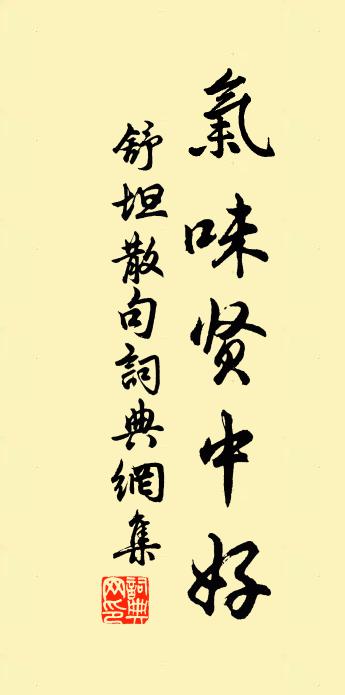 氣味贤中好
舒坦散句詞典網集
詞典网印